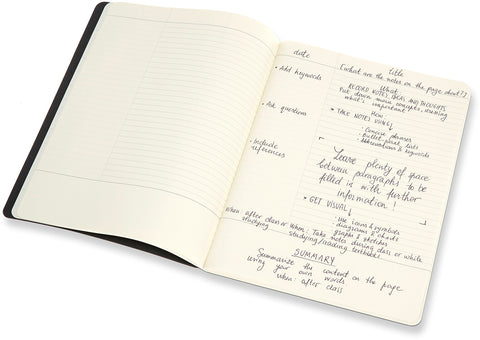 date
title
[what are the notes on the page about?]
• Add keywords
What
RECORD NOTES, IDEAS AND THOUGHTS
Put down main concepts, meaning
what's important
How
• Ask questions
• TAKE NOTES USING
• Concise phrases
• Bullet point lists
• Abbreviations & keywords
• Include
references
Leave plenty of space
between paragraphs to be
filled in with further
information!
• GET VISUAL
• Use icons & symbols
diagrams & charts
graphs & sketches
When after class or when
studying
Take notes during class or while
studying/reading textbook
SUMMARY
Summarize the content on the page
using your own words
when after class